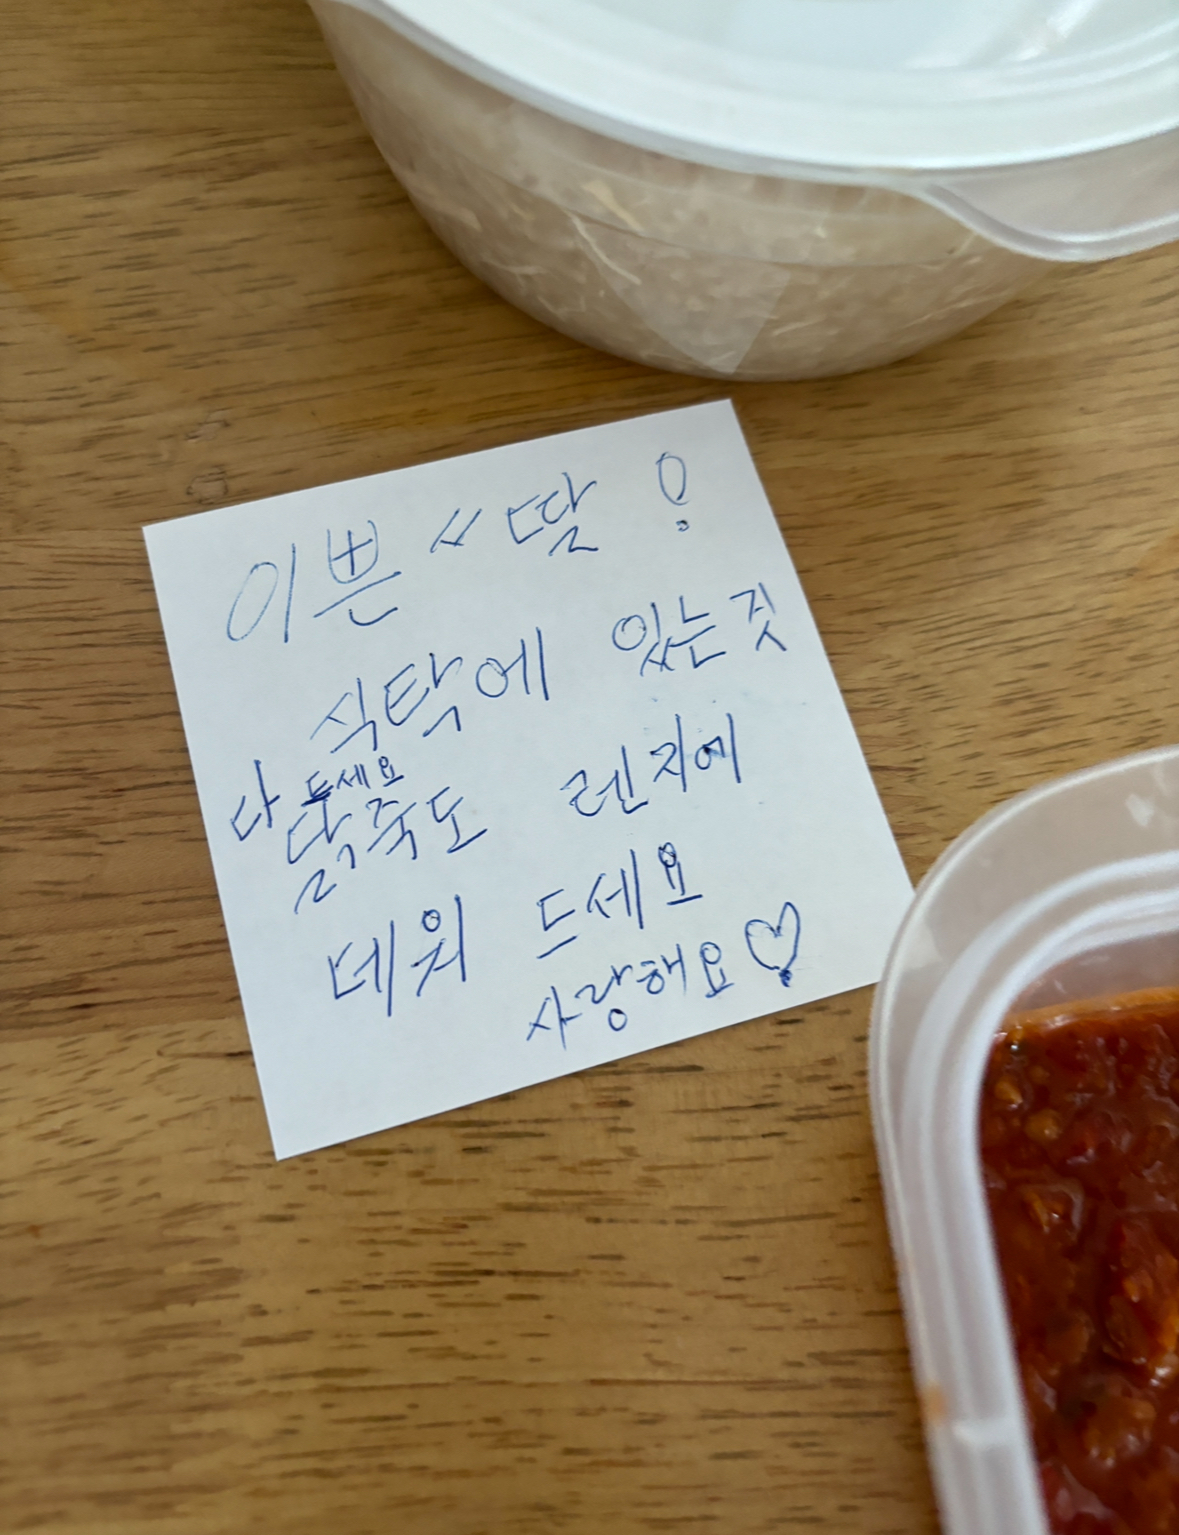 이쁜 〃 딸 !
식탁에 있는 것
다 드세요
닭죽도 렌지에
데워 드세요
사랑해요♡